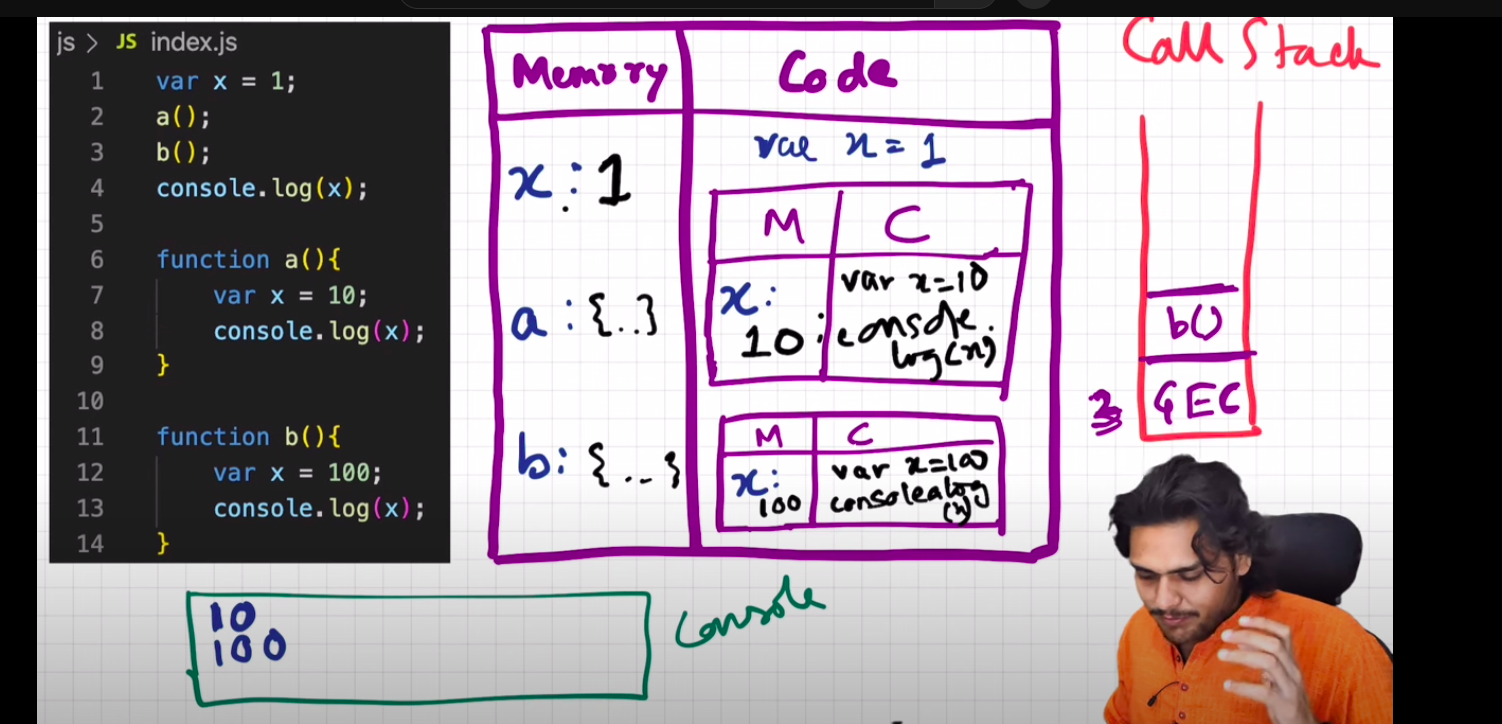 js > JS index.js
1 var x = 1;
2 a();
3 b();
4 console.log(x);
5
6 function a(){
7 var x = 10;
8 console.log(x);
9 }
10
11 function b(){
12 var x = 100;
13 console.log(x);
14 }
Memory
Code
x : 1
a : {..}
b: {...}
var x = 1
M
C
x:
10
var x=10
console.
log(x)
M
C
x:
100
var x=100
console.log
(x)
Call Stack
b()
3 GEC
10
100
Console